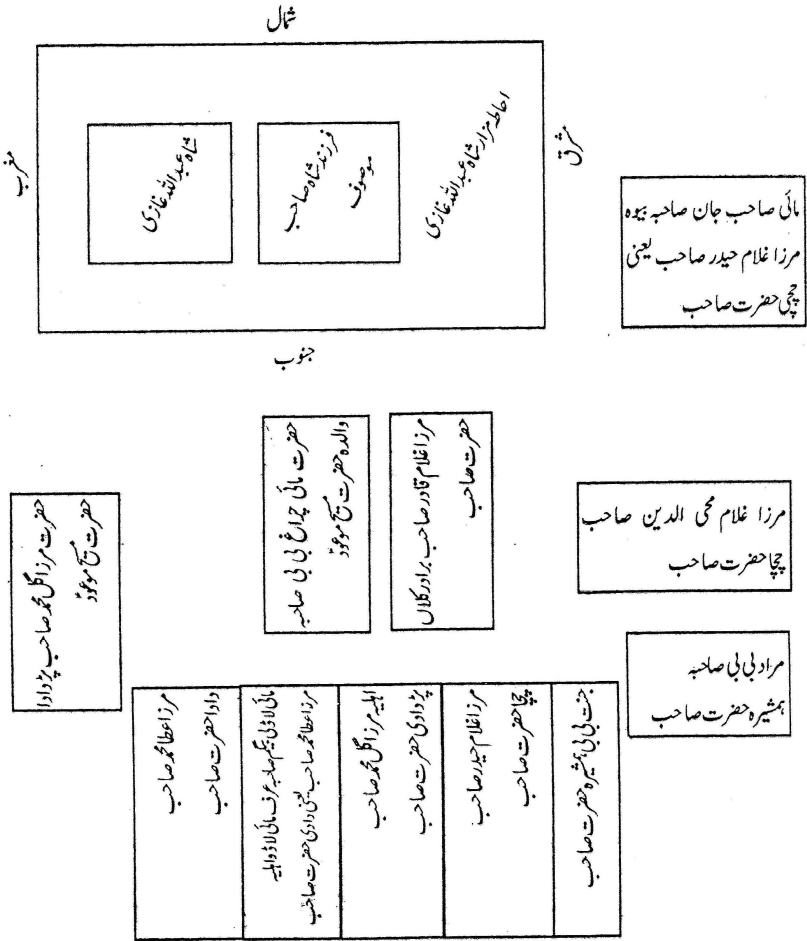 شمال
مغرب
مشرق
شاہ عبداللہ غازی
فرزند شاہ صاحب
موصوف
احاطہ مزار شاہ عبداللہ غازی
جنوب
مائی صاحب جان صاحبہ بیوہ
مرزا غلام حیدر صاحب یعنی
چچی حضرت صاحب
حضرت مرزا گل محمد صاحب پڑدادا
حضرت مسیح موعودؑ
حضرت مائی چراغ بی بی صاحبہ
والدہ حضرت مسیح موعودؑ
مرزا غلام قادر صاحب برادر کلاں
حضرت صاحب
مرزا غلام محی الدین صاحب
چچا حضرت صاحب
مراد بی بی صاحبہ
ہمشیرہ حضرت صاحب
مرزا عطا محمد صاحب
دادا حضرت صاحب
مائی لاڈلی بیگم صاحبہ عرف مائی لاڈو اہلیہ
مرزا عطا محمد صاحب یعنی دادی حضرت صاحب
اہلیہ مرزا گل محمد صاحب
پڑدادی حضرت صاحب
مرزا غلام حیدر صاحب
چچا حضرت صاحب
جنت بی بی ہمشیرہ حضرت صاحب